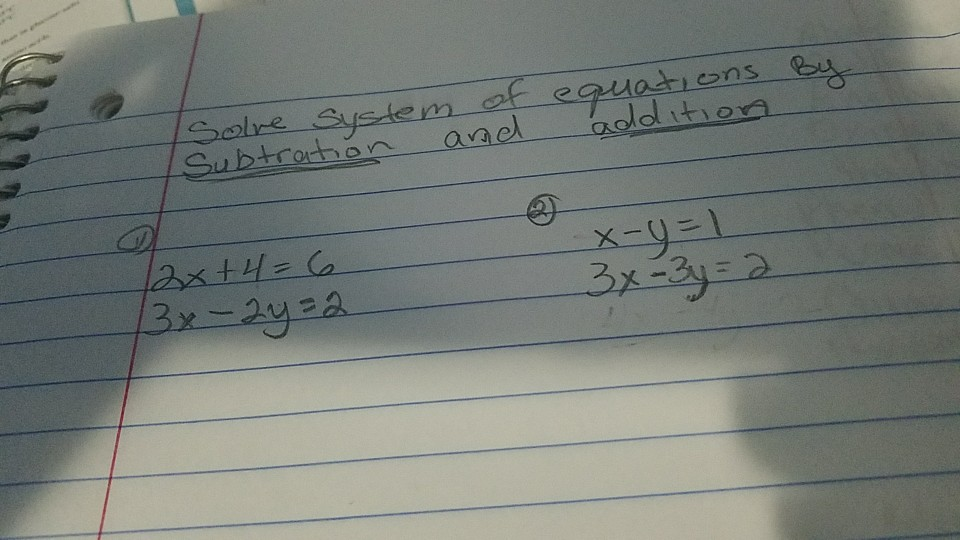 Solve System of equations By
Subtration and addition
① ②
2x+4=6
3x-2y=2
x-y=1
3x-3y=2